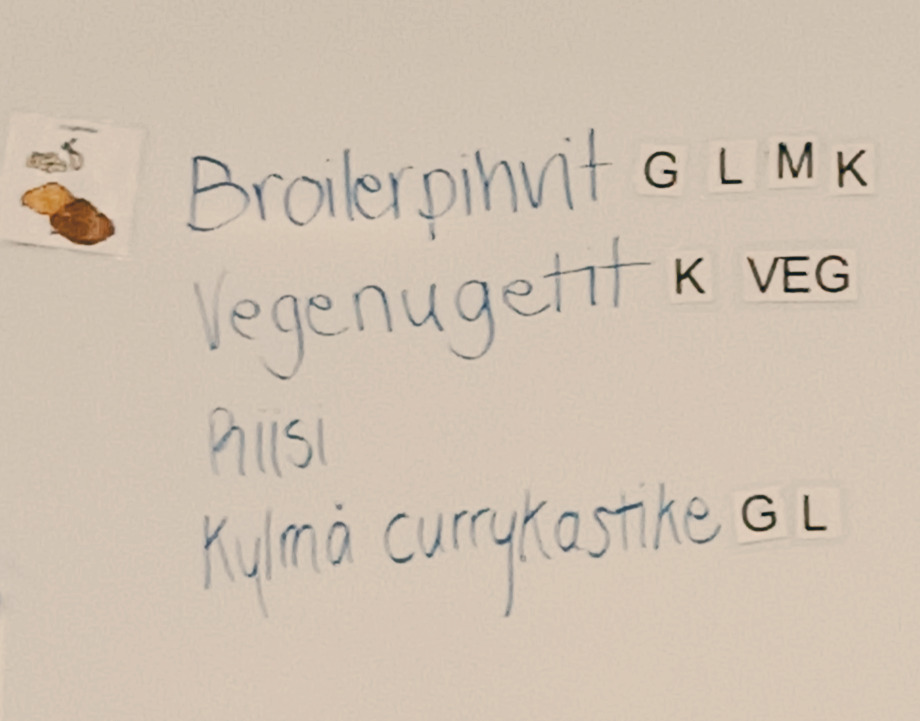 Broilerpihvit G L M K
Vegenugetit K VEG
Riisi
Kylmä currykastike G L